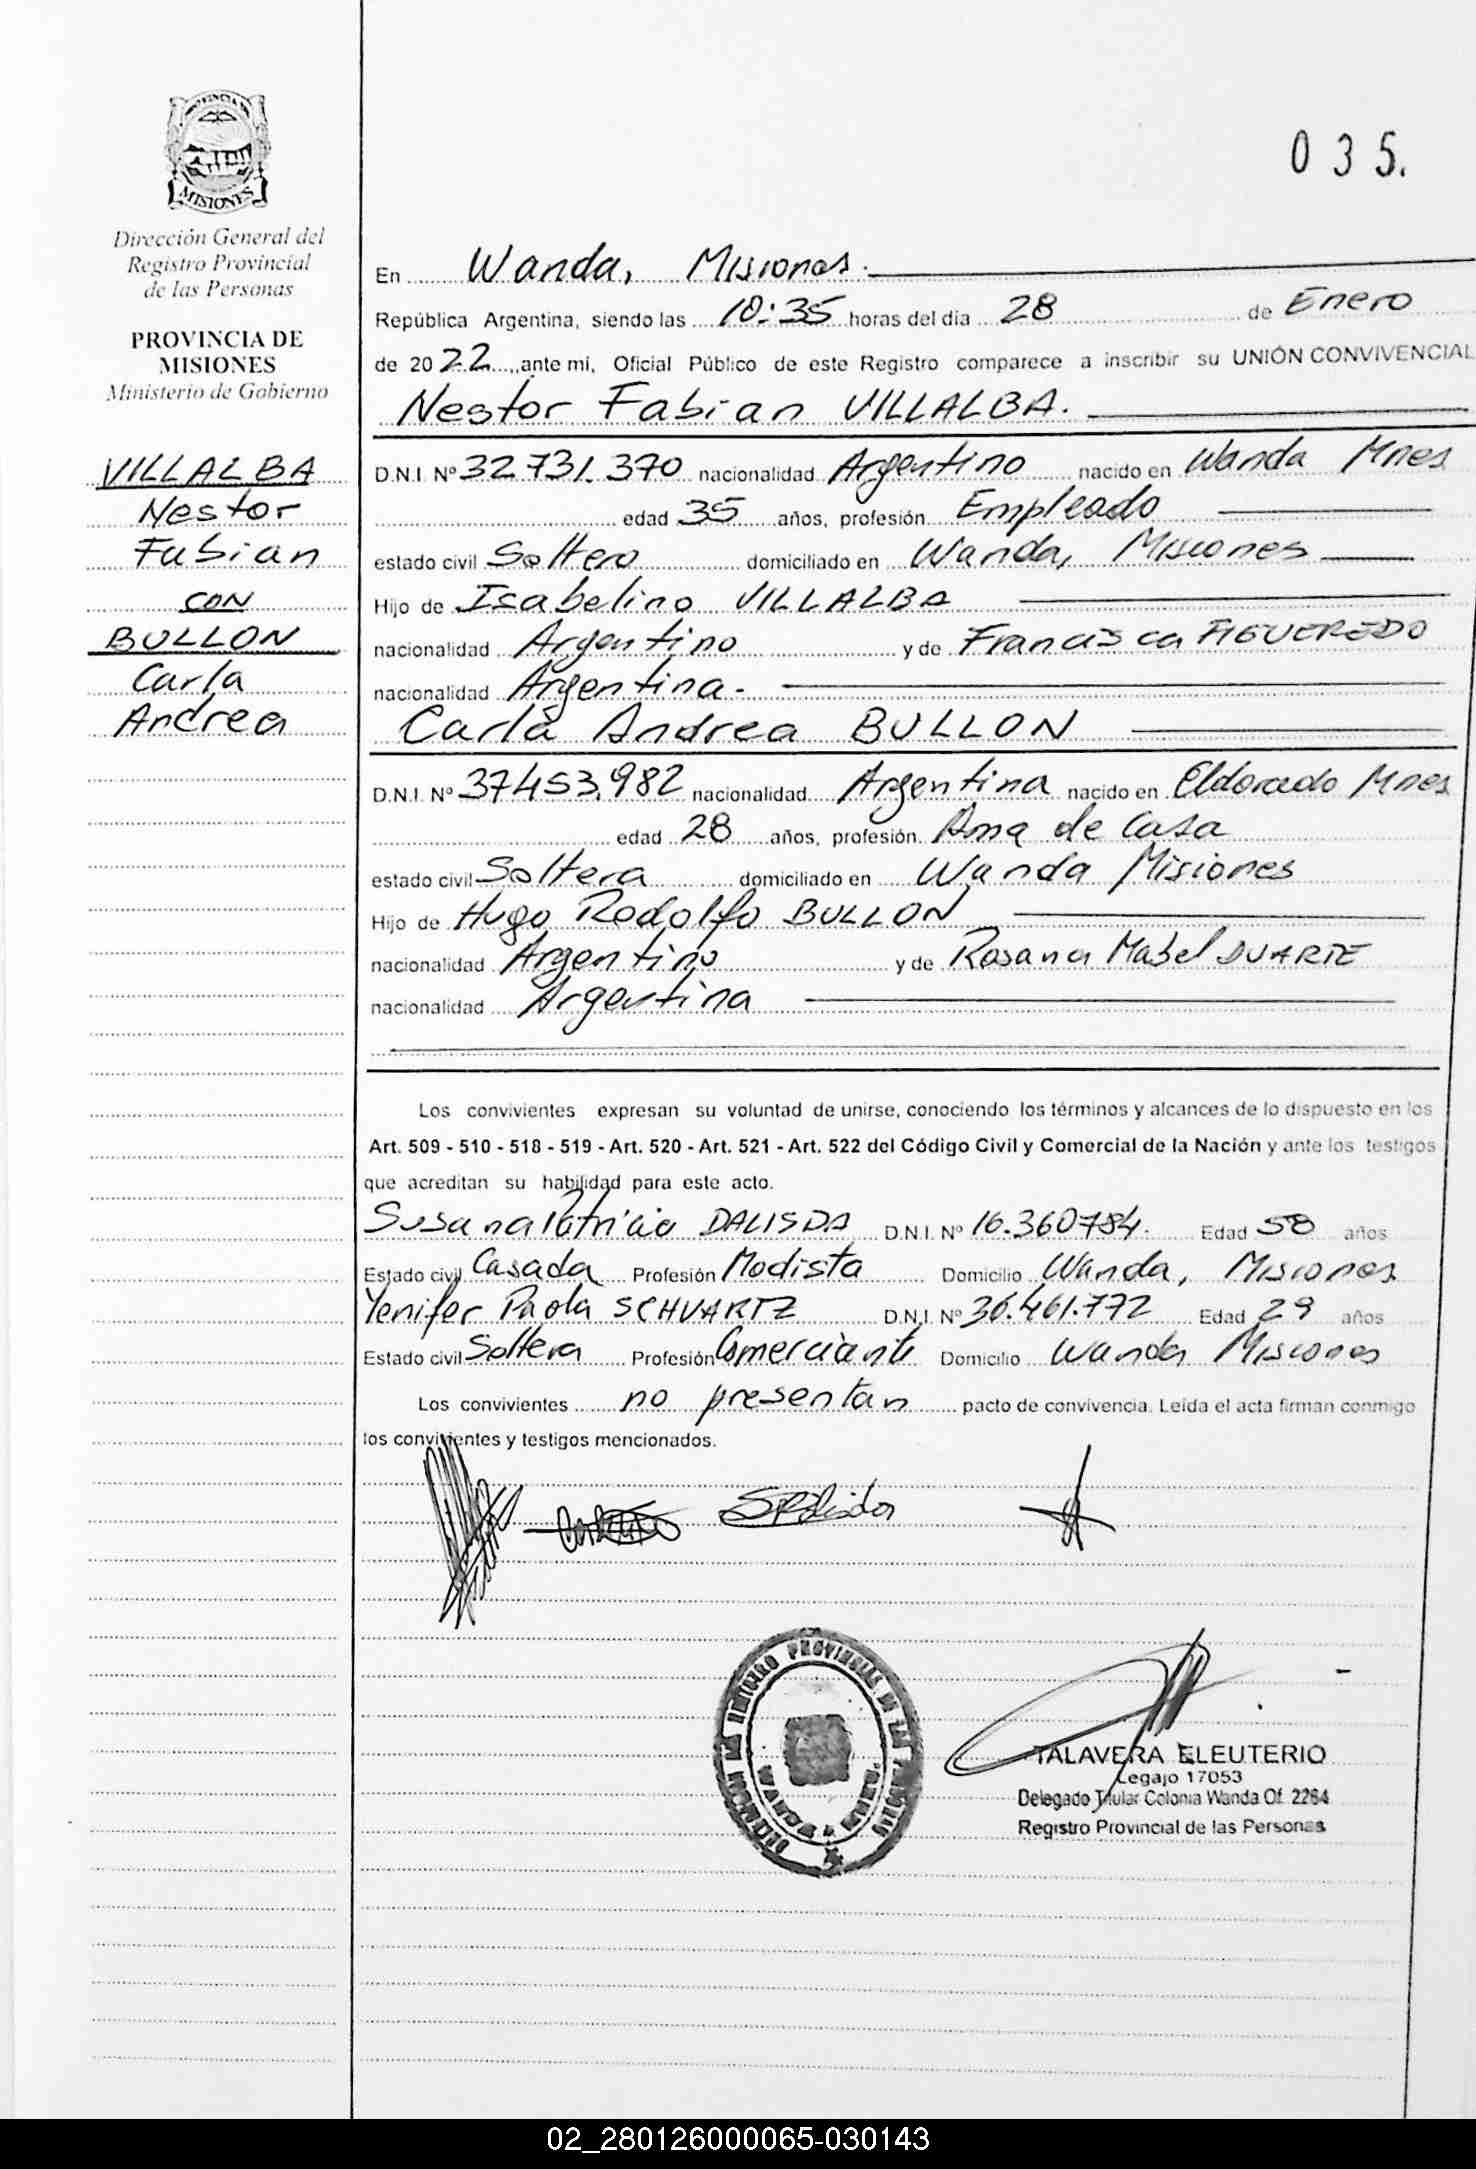 035.
PROVINCIA DE
MISIONES
Dirección General del
Registro Provincial
de las Personas
PROVINCIA DE
MISIONES
Ministerio de Gobierno
VILLALBA
Nestor
Fabian
CON
BULLON
Carla
Andrea
En Wanda, Misiones.
República Argentina, siendo las 10:35 horas del día 28 de Enero
de 2022, ante mi, Oficial Público de este Registro comparece a inscribir su UNIÓN CONVIVENCIAL
Nestor Fabian VILLALBA.
D.N.I. Nº 32.731.370 nacionalidad Argentino nacido en Wanda Mnes
edad 35 años, profesión Empleado
estado civil Soltero domiciliado en Wanda, Misiones
Hijo de Isabelino VILLALBA
nacionalidad Argentino y de Francisca FIGUEREDO
nacionalidad Argentina.
Carla Andrea BULLON
D.N.I. Nº 37453.982 nacionalidad Argentina nacido en Eldorado Mnes
edad 28 años, profesión Ama de Casa
estado civil Soltera domiciliado en Wanda Misiones
Hijo de Hugo Rodolfo BULLON
nacionalidad Argentino y de Rosana Mabel DUARTE
nacionalidad Argentina
Los convivientes expresan su voluntad de unirse, conociendo los términos y alcances de lo dispuesto en los
Art. 509 - 510 - 518 - 519 - Art. 520 - Art. 521 - Art. 522 del Código Civil y Comercial de la Nación y ante los testigos
que acreditan su habilidad para este acto.
Susana Patricia DALISDA D.N.I. Nº 16.360784. Edad 58 años
Estado civil Casada Profesión Modista Domicilio Wanda, Misiones
Yenifer Paola SCHVARTZ D.N.I. Nº 36.461.772 Edad 29 años
Estado civil Soltera Profesión Comerciante Domicilio Wanda Misiones
Los convivientes no presentan pacto de convivencia. Leída el acta firman conmigo
los convivientes y testigos mencionados.
TALAVERA ELEUTERIO
Legajo 17053
Delegado Titular Colonia Wanda Of. 2264
Registro Provincial de las Personas
02_280126000065-030143